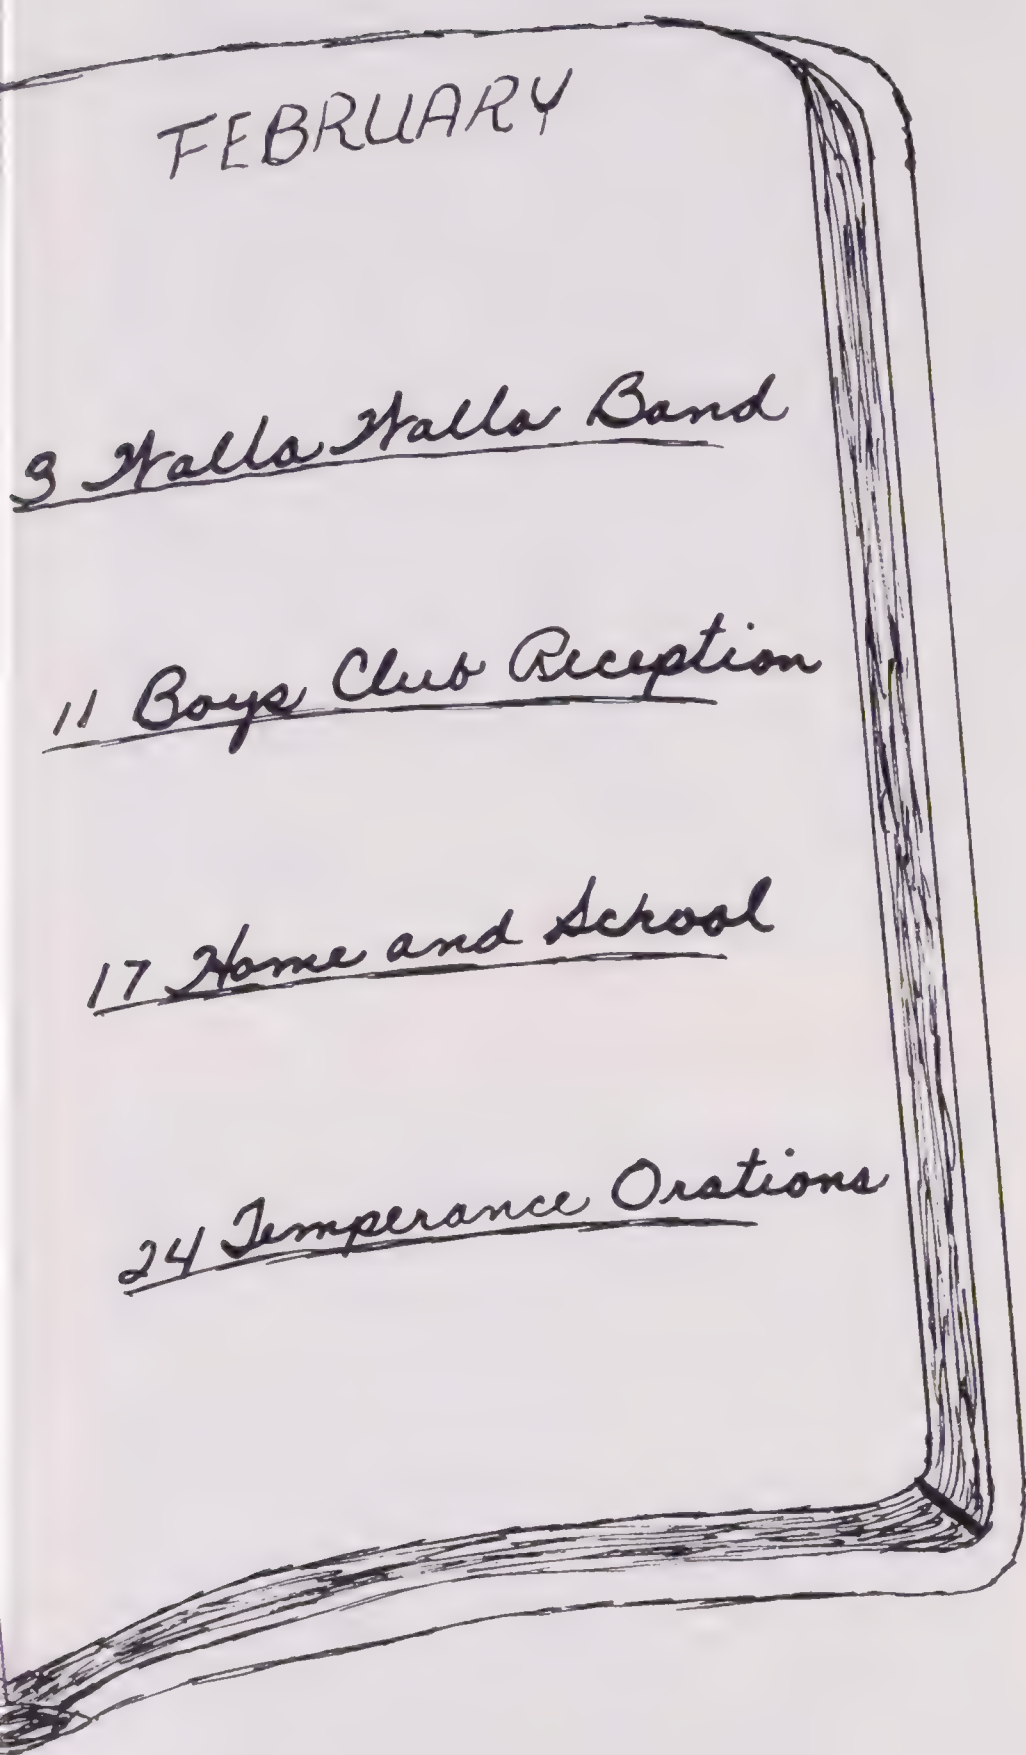 FEBRUARY
3 Walla Walla Band
11 Boys Club Reception
17 Home and School
24 Temperance Orations